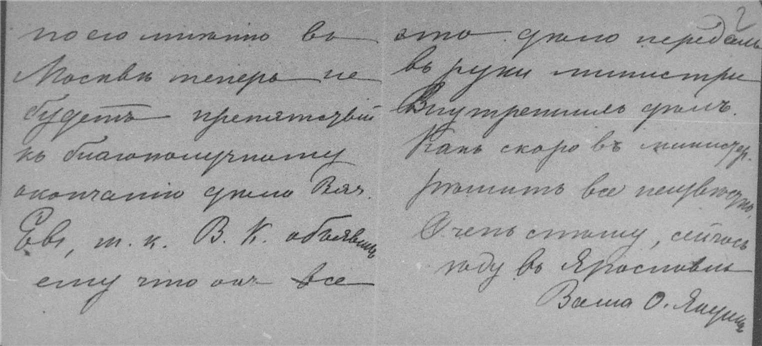 по его мнению въ
Москвѣ теперь не
будетъ препятствій
къ благополучному
окончанію дѣла Вяч.
Евг, т. к. В. К. объявилъ
ему что онъ все
это дѣло передалъ
въ руки министра
Внутреннихъ дѣлъ.
Какъ скоро въ министер.
рѣшатъ все неизвѣстно.
Очень спѣшу, сейчасъ
ѣду въ Ярославль
Ваша О.